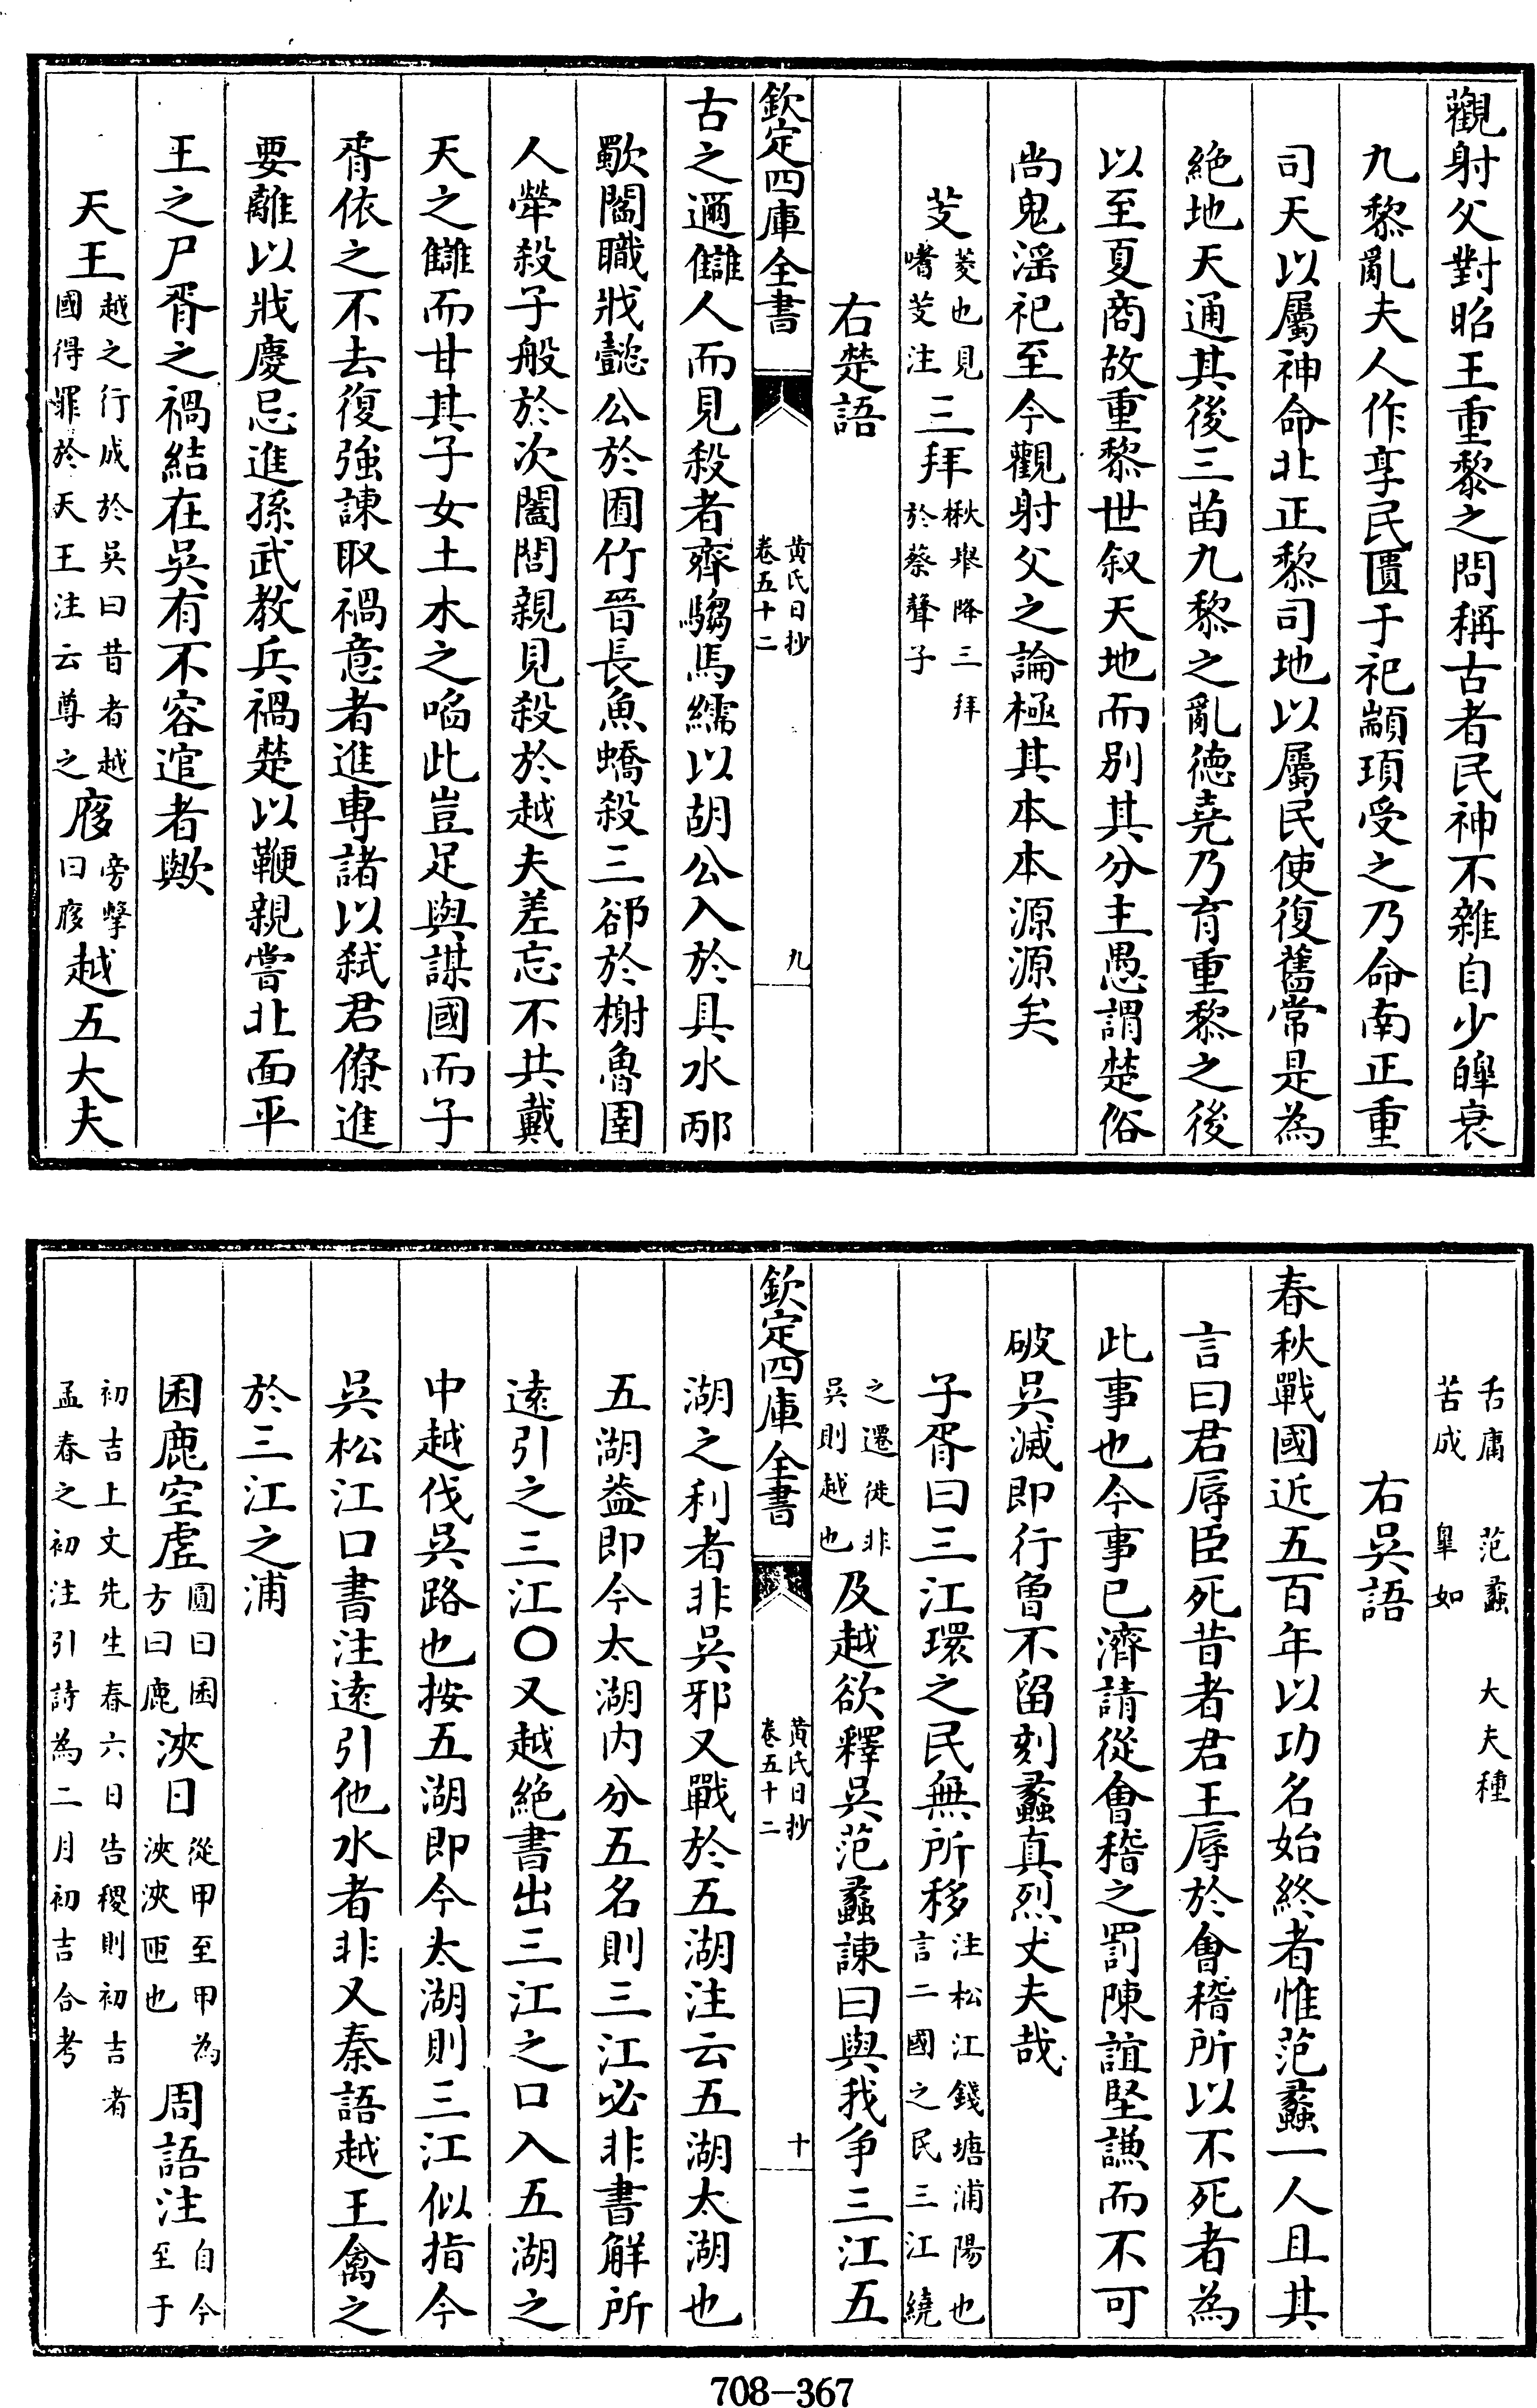 觀射父對昭王重黎之問稱古者民神不雜自少皥衰
九黎亂夫人作享民匱于祀顓頊受之乃命南正重
司天以屬神命北正黎司地以屬民使復舊常是為
絶地天通其後三苗九黎之亂徳堯乃育重黎之後
以至夏商故重黎世叙天地而别其分主愚謂楚俗
尚鬼滛祀至今觀射父之論極其本本源源矣
芰菱也見嗜芰注三拜椒舉降三拜於蔡聲子
右楚語
欽定四庫全書
黄氏日抄
卷五十二
九
古之邇讎人而見殺者齊騶馬繻以胡公入於具水邴
歜閻職戕懿公於囿竹晉長魚蟜殺三郤於榭魯圉
人犖殺子般於次闔閭親見殺於越夫差忘不共戴
天之讎而甘其子女土木之啗此豈足與謀國而子
胥依之不去復強諫取禍意者進専諸以弑君僚進
要離以戕慶忌進孫武教兵禍楚以鞭親嘗北面平
王之尸胥之禍結在吳有不容逭者歟
天王越之行成於吳曰昔者越國得罪於天王注云尊之㢋旁擊曰㢋越五大夫
舌庸　范蠡　大夫種
苦成　臯如
右吳語
春秋戰國近五百年以功名始終者惟范蠡一人且其
言曰君辱臣死昔者君王辱於會稽所以不死者為
此事也今事已濟請從會稽之罰陳誼堅謙而不可
破吳滅即行曾不留刻蠡真烈丈夫哉
子胥曰三江環之民無所移注松江錢塘浦陽也言二國之民三江繞
之遷徙非吳則越也及越欲釋吳范蠡諫曰與我爭三江五
欽定四庫全書
黄氏日抄
卷五十二
十
湖之利者非吳邪又戰於五湖注云五湖太湖也
五湖葢即今太湖内分五名則三江必非書解所
逺引之三江〇又越絶書出三江之口入五湖之
中越伐吳路也按五湖即今太湖則三江似指今
吳松江口書注逺引他水者非又秦語越王禽之
於三江之浦
囷鹿空虚圓曰囷方曰鹿浹日從甲至甲為浹浹匝也周語注自今至于
初吉上文先生春六日告稷則初吉者孟春之初注引詩為二月初吉合考
708-367